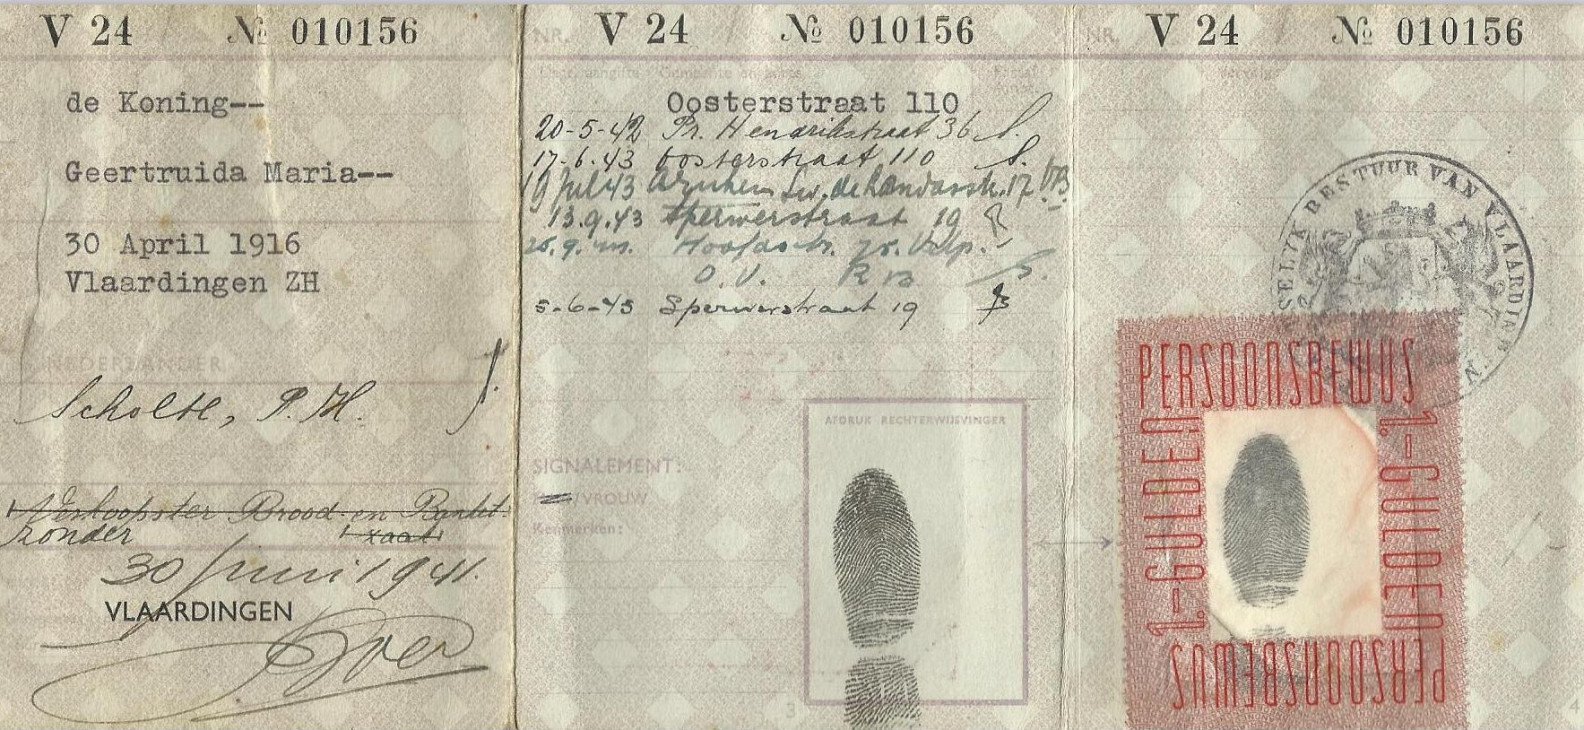 V 24 № 010156
de Koning--
Geertruida Maria--
30 April 1916
Vlaardingen ZH
NEDERLANDER
Scholte, P. H.
Verkoopster Brood en Banket
zonder zaak
30 Juni 1941.
VLAARDINGEN
V 24 № 010156
NR.
Oosterstraat 110
20-5-42 Pr. Hendrikstraat 36
17-6-43 Oosterstraat 110
19 Jul 43 Arnhem 17
13.9.43 Sperwerstraat 19
Velp.
O.V.
5-6-45 Sperwerstraat 19
AFDRUK RECHTERWIJSVINGER
SIGNALEMENT:
VROUW
Kenmerken:
3
V 24 № 010156
NR.
BESTUUR VAN VLAARDINGEN
PERSOONSBEWIJS
1.-GULDEN
1.-GULDEN
PERSOONSBEWIJS
4